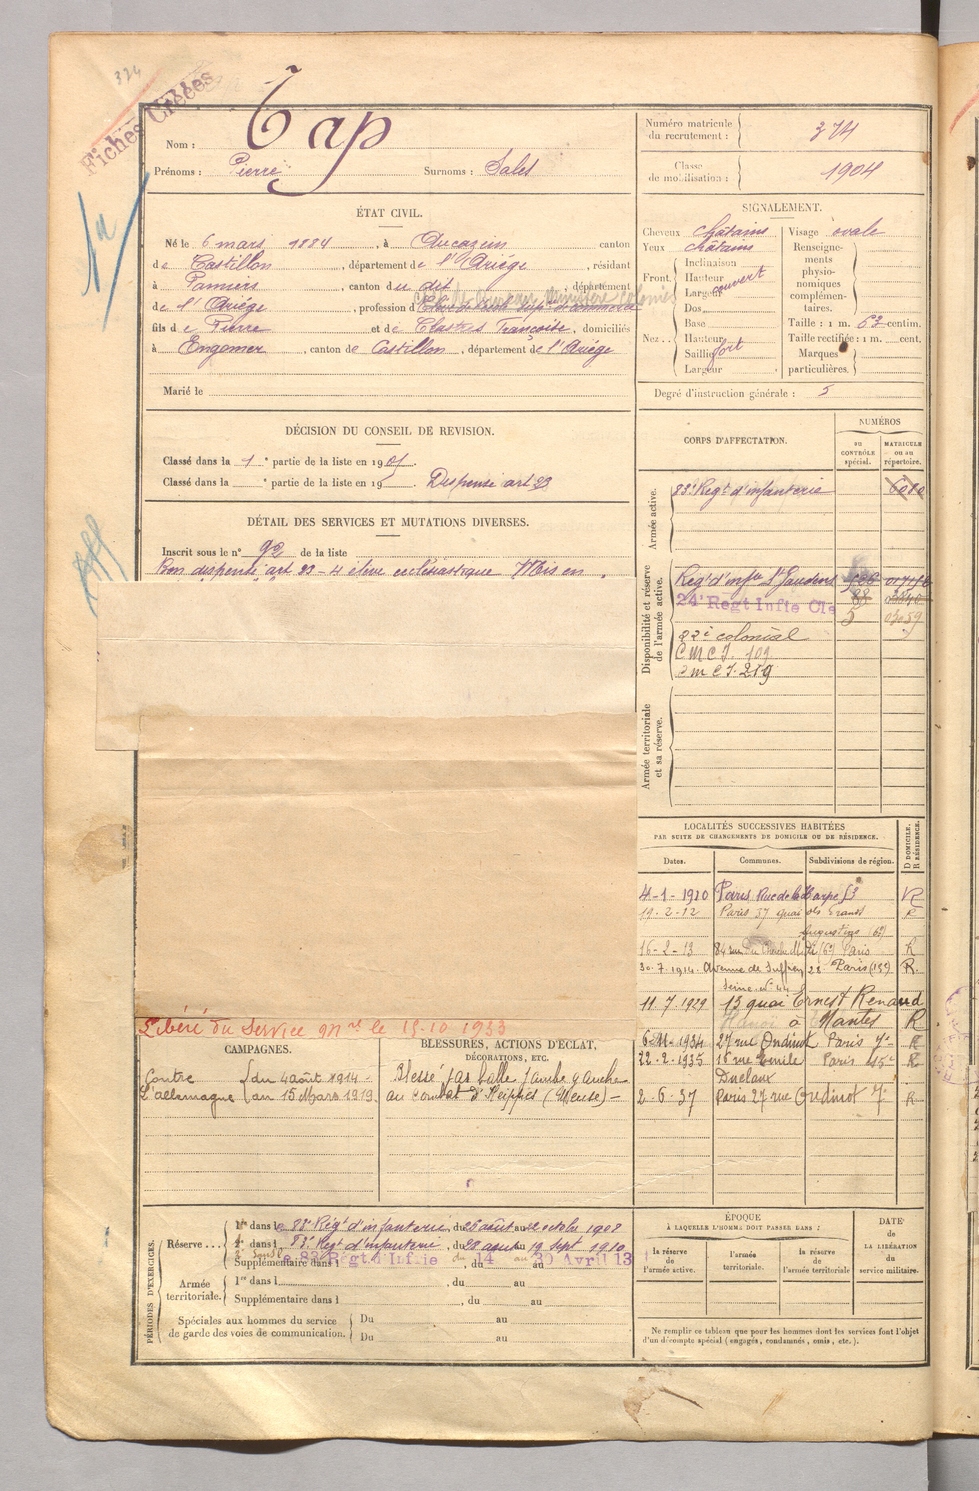 324
Fiches Créées
Nom : Tap
Prénoms : Pierre Surnoms : Sales
Numéro matricule du recrutement : 374
Classe de mobilisation : 1904
ÉTAT CIVIL.
Né le 6 mars 1884, à Aucazein canton
de Castillon, département de l'Ariège, résidant
à Pamiers, canton du dit, département
de l'Ariège, profession d
fils de Pierre et de Clastres Françoise, domiciliés
à Engomer, canton de Castillon, département de l'Ariège
Marié le
SIGNALEMENT.
Cheveux châtains Visage ovale
Yeux châtains
Front. Inclinaison Hauteur Largeur couvert
Nez.. Dos Base Hauteur Saillie Largeur fort
Renseignements physionomiques complémentaires.
Taille : 1 m. 63 centim.
Taille rectifiée : 1 m. cent.
Marques particulières.
Degré d'instruction générale : 5
DÉCISION DU CONSEIL DE REVISION.
Classé dans la 1e partie de la liste en 1905.
Classé dans la e partie de la liste en 19 Dispensé art 23
DÉTAIL DES SERVICES ET MUTATIONS DIVERSES.
Inscrit sous le n° 92 de la liste
Bon dispensé art 23 - 4 élève ecclésiastique Mis en
CORPS D'AFFECTATION.
NUMÉROS
au CONTRÔLE spécial.
MATRICULE ou au répertoire.
Armée active.
83e Regt d'infanterie 6010
Disponibilité et réserve de l'armée active.
Regt d'infie St Gaudens
24e Regt Infie Cle 88
5 03059
22e colonial
C m C I. 109
C m C I. 219
Armée territoriale et sa réserve.
LOCALITÉS SUCCESSIVES HABITÉES
PAR SUITE DE CHANGEMENTS DE DOMICILE OU DE RÉSIDENCE.
D DOMICILE. R RÉSIDENCE.
Dates. Communes. Subdivisions de région.
4-1-1910 Paris Rue de la Harpe 53 R
19-2-12 Paris 57 quai des Grands R
Augustins (6e)
16-2-13 84 rue du Cherche Midi (6e) Paris R
30.7.1914 Avenue de Suffren 28 Paris (15e) R.
Seine n° 44
11.7.1929 13 quai Ernest Renaud
à Nantes R
6-11-1934 27 rue Oudinot Paris 7e R
22.2.1935 16 rue Emile Paris 15e R
Duclaux
2.6.37 Paris 27 rue Oudinot 7e R
Libéré du Service mre le 15-10 1933
CAMPAGNES.
Contre l'allemagne { du 4 août 1914 - au 15 Mars 1919.
BLESSURES, ACTIONS D'ÉCLAT, DÉCORATIONS, ETC.
Blessé par balle jambe gauche
au combat d'Heippes (Meuse) -
PÉRIODES D'EXERCICES.
Réserve... 1re dans le 83e Régt d'infanterie, du 26 août au 22 octobre 1908
2e dans le 83e Regt d'infanterie, du 28 août au 19 sept 1910
Supplémentaire dans l 83e Régt d'Infie du 14 au 30 Avril 13
Armée territoriale. 1re dans l , du au
Supplémentaire dans l , du au
Spéciales aux hommes du service de garde des voies de communication. Du au
Du au
ÉPOQUE
À LAQUELLE L'HOMME DOIT PASSER DANS :
la réserve de l'armée active.
l'armée territoriale.
la réserve de l'armée territoriale
DATE DE LA LIBÉRATION du service militaire.
Ne remplir ce tableau que pour les hommes dont les services font l'objet
d'un décompte spécial (engagés, condamnés, omis, etc.).